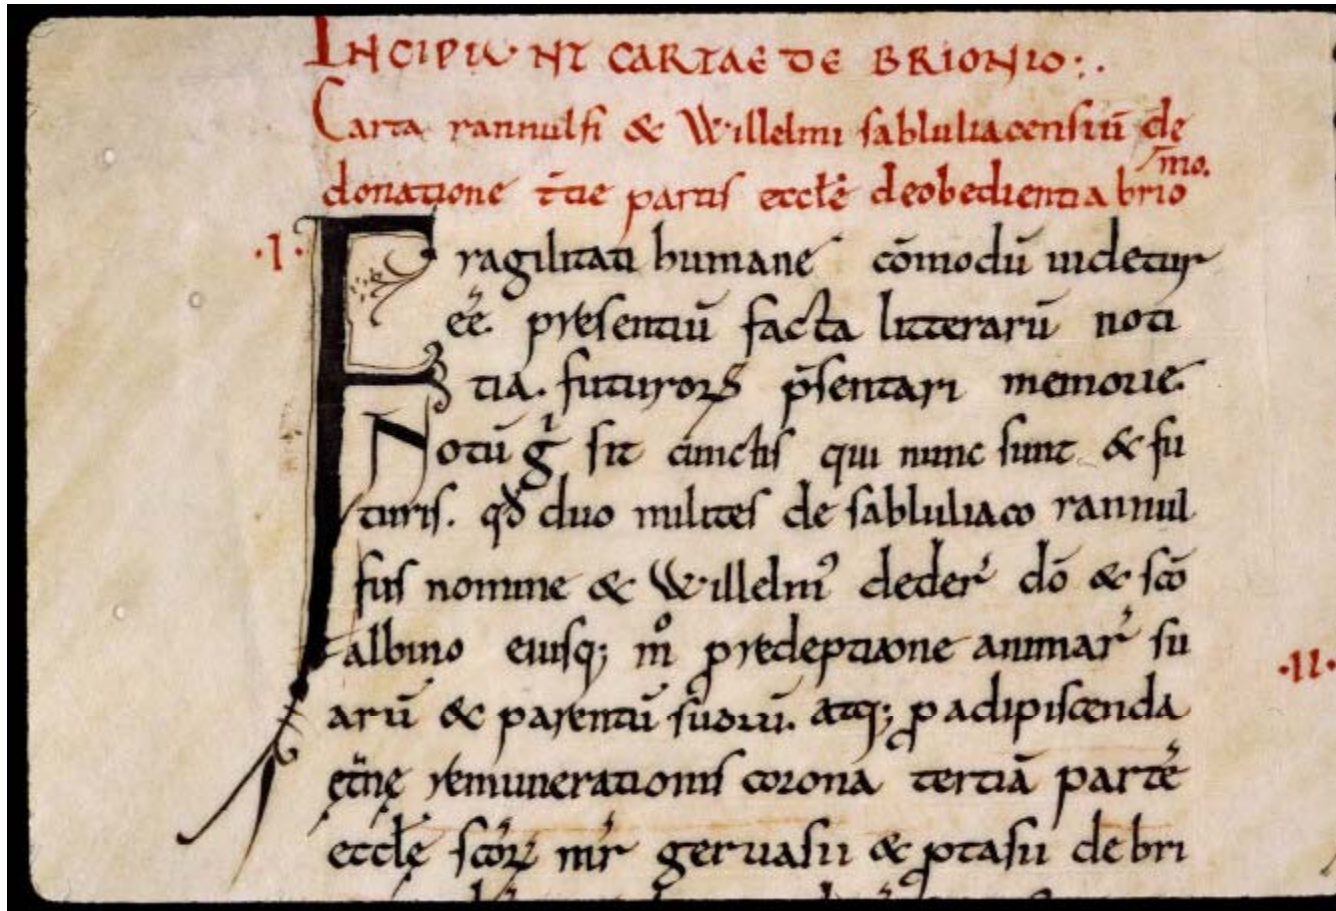 INCIPIUNT CARTAE DE BRIONIO:.
Carta rannulfi & Willelmi sabluliacensiū de
donatione t̄tie partis eccłe deobedientia brio
nio.
·I· Fragilitati humane cōmodū uidetur
eē. presentiū facta litterarū noti
tia. futuroꝝ p̄sentari memorie.
Notū gͥ sit cunctis qui nunc sunt & fu
turis. qđ duo milites de sabluliaco rannul
fus nomine & Willelmꝰ dederͭ dō & scō
albino eiusq; m̊ ꝓredeptione animarͭ su
arū & parentū suorū. atq; ꝓ adipiscenda
ęt̄nę remunerationis corona tertiā partē
eccłę scōꝝ mr̄ geruasii & ꝓtasii de bri
·II·